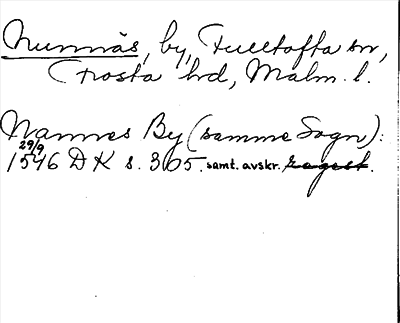 Nunnäs, by, Fulltofta sn,
Frosta hd, Malm. l.
Nannes By (samme Sogn):
29/9
1546 DK s. 365. samt. avskr.